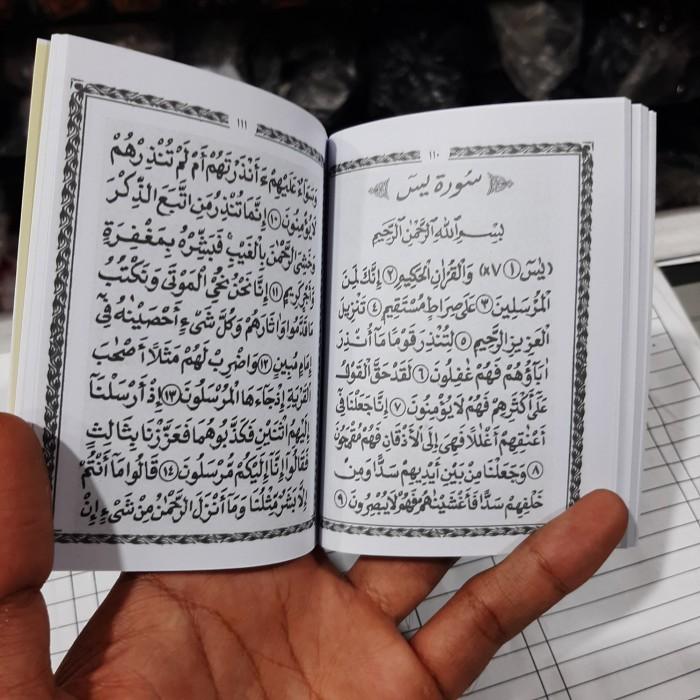 ١١٠
سُورَة يٰسٓ
بِسْمِ اللّٰهِ الرَّحْمٰنِ الرَّحِيْمِ
(يٰسٓ ۝١ ×٧) وَالْقُرْاٰنِ الْحَكِيْمِ ۝٢ اِنَّكَ لَمِنَ
الْمُرْسَلِيْنَ ۝٣ عَلٰى صِرَاطٍ مُسْتَقِيْمٍ ۝٤ تَنْزِيْلَ
الْعَزِيْزِ الرَّحِيْمِ ۝٥ لِتُنْذِرَ قَوْمًا مَا اُنْذِرَ
اٰبَاؤُهُمْ فَهُمْ غٰفِلُوْنَ ۝٦ لَقَدْ حَقَّ الْقَوْلُ
عَلٰى اَكْثَرِهِمْ فَهُمْ لَا يُؤْمِنُوْنَ ۝٧ اِنَّا جَعَلْنَا فِيْ
اَعْنَاقِهِمْ اَغْلٰلًا فَهِيَ اِلَى الْاَذْقَانِ فَهُمْ مُقْمَحُوْنَ
۝٨ وَجَعَلْنَا مِنْ بَيْنِ اَيْدِيْهِمْ سَدًّا وَمِنْ
خَلْفِهِمْ سَدًّا فَاَغْشَيْنٰهُمْ فَهُمْ لَا يُبْصِرُوْنَ ۝٩
١١١
وَسَوَاۤءٌ عَلَيْهِمْ ءَاَنْذَرْتَهُمْ اَمْ لَمْ تُنْذِرْهُمْ
لَا يُؤْمِنُوْنَ ۝١٠ اِنَّمَا تُنْذِرُ مَنِ اتَّبَعَ الذِّكْرَ
وَخَشِيَ الرَّحْمٰنَ بِالْغَيْبِ فَبَشِّرْهُ بِمَغْفِرَةٍ
وَاَجْرٍ كَرِيْمٍ ۝١١ اِنَّا نَحْنُ نُحْيِ الْمَوْتٰى وَنَكْتُبُ
مَا قَدَّمُوْا وَاٰثَارَهُمْ وَكُلَّ شَيْءٍ اَحْصَيْنٰهُ فِيْ
اِمَامٍ مُبِيْنٍ ۝١٢ وَاضْرِبْ لَهُمْ مَثَلًا اَصْحٰبَ
الْقَرْيَةِ اِذْ جَاۤءَهَا الْمُرْسَلُوْنَ ۝١٣ اِذْ اَرْسَلْنَا
اِلَيْهِمُ اثْنَيْنِ فَكَذَّبُوْهُمَا فَعَزَّزْنَا بِثَالِثٍ
فَقَالُوْا اِنَّا اِلَيْكُمْ مُرْسَلُوْنَ ۝١٤ قَالُوْا مَا اَنْتُمْ
اِلَّا بَشَرٌ مِثْلُنَا وَمَا اَنْزَلَ الرَّحْمٰنُ مِنْ شَيْءٍ اِنْ